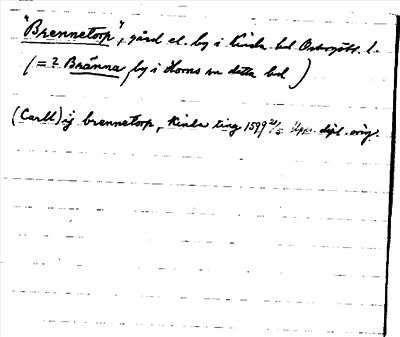 "Brennetorp", gård el. by i Kinda hd Östergötl. l.
(= ? Bränna, by i Horns sn detta hd)
(Carll) ij brennetorp, Kinla ting 1599 21/5 Upps. dipl. orig.